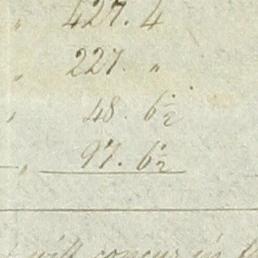 " 427. 4
" 227. "
" 48. 6½
" 97. 6½
will concur in